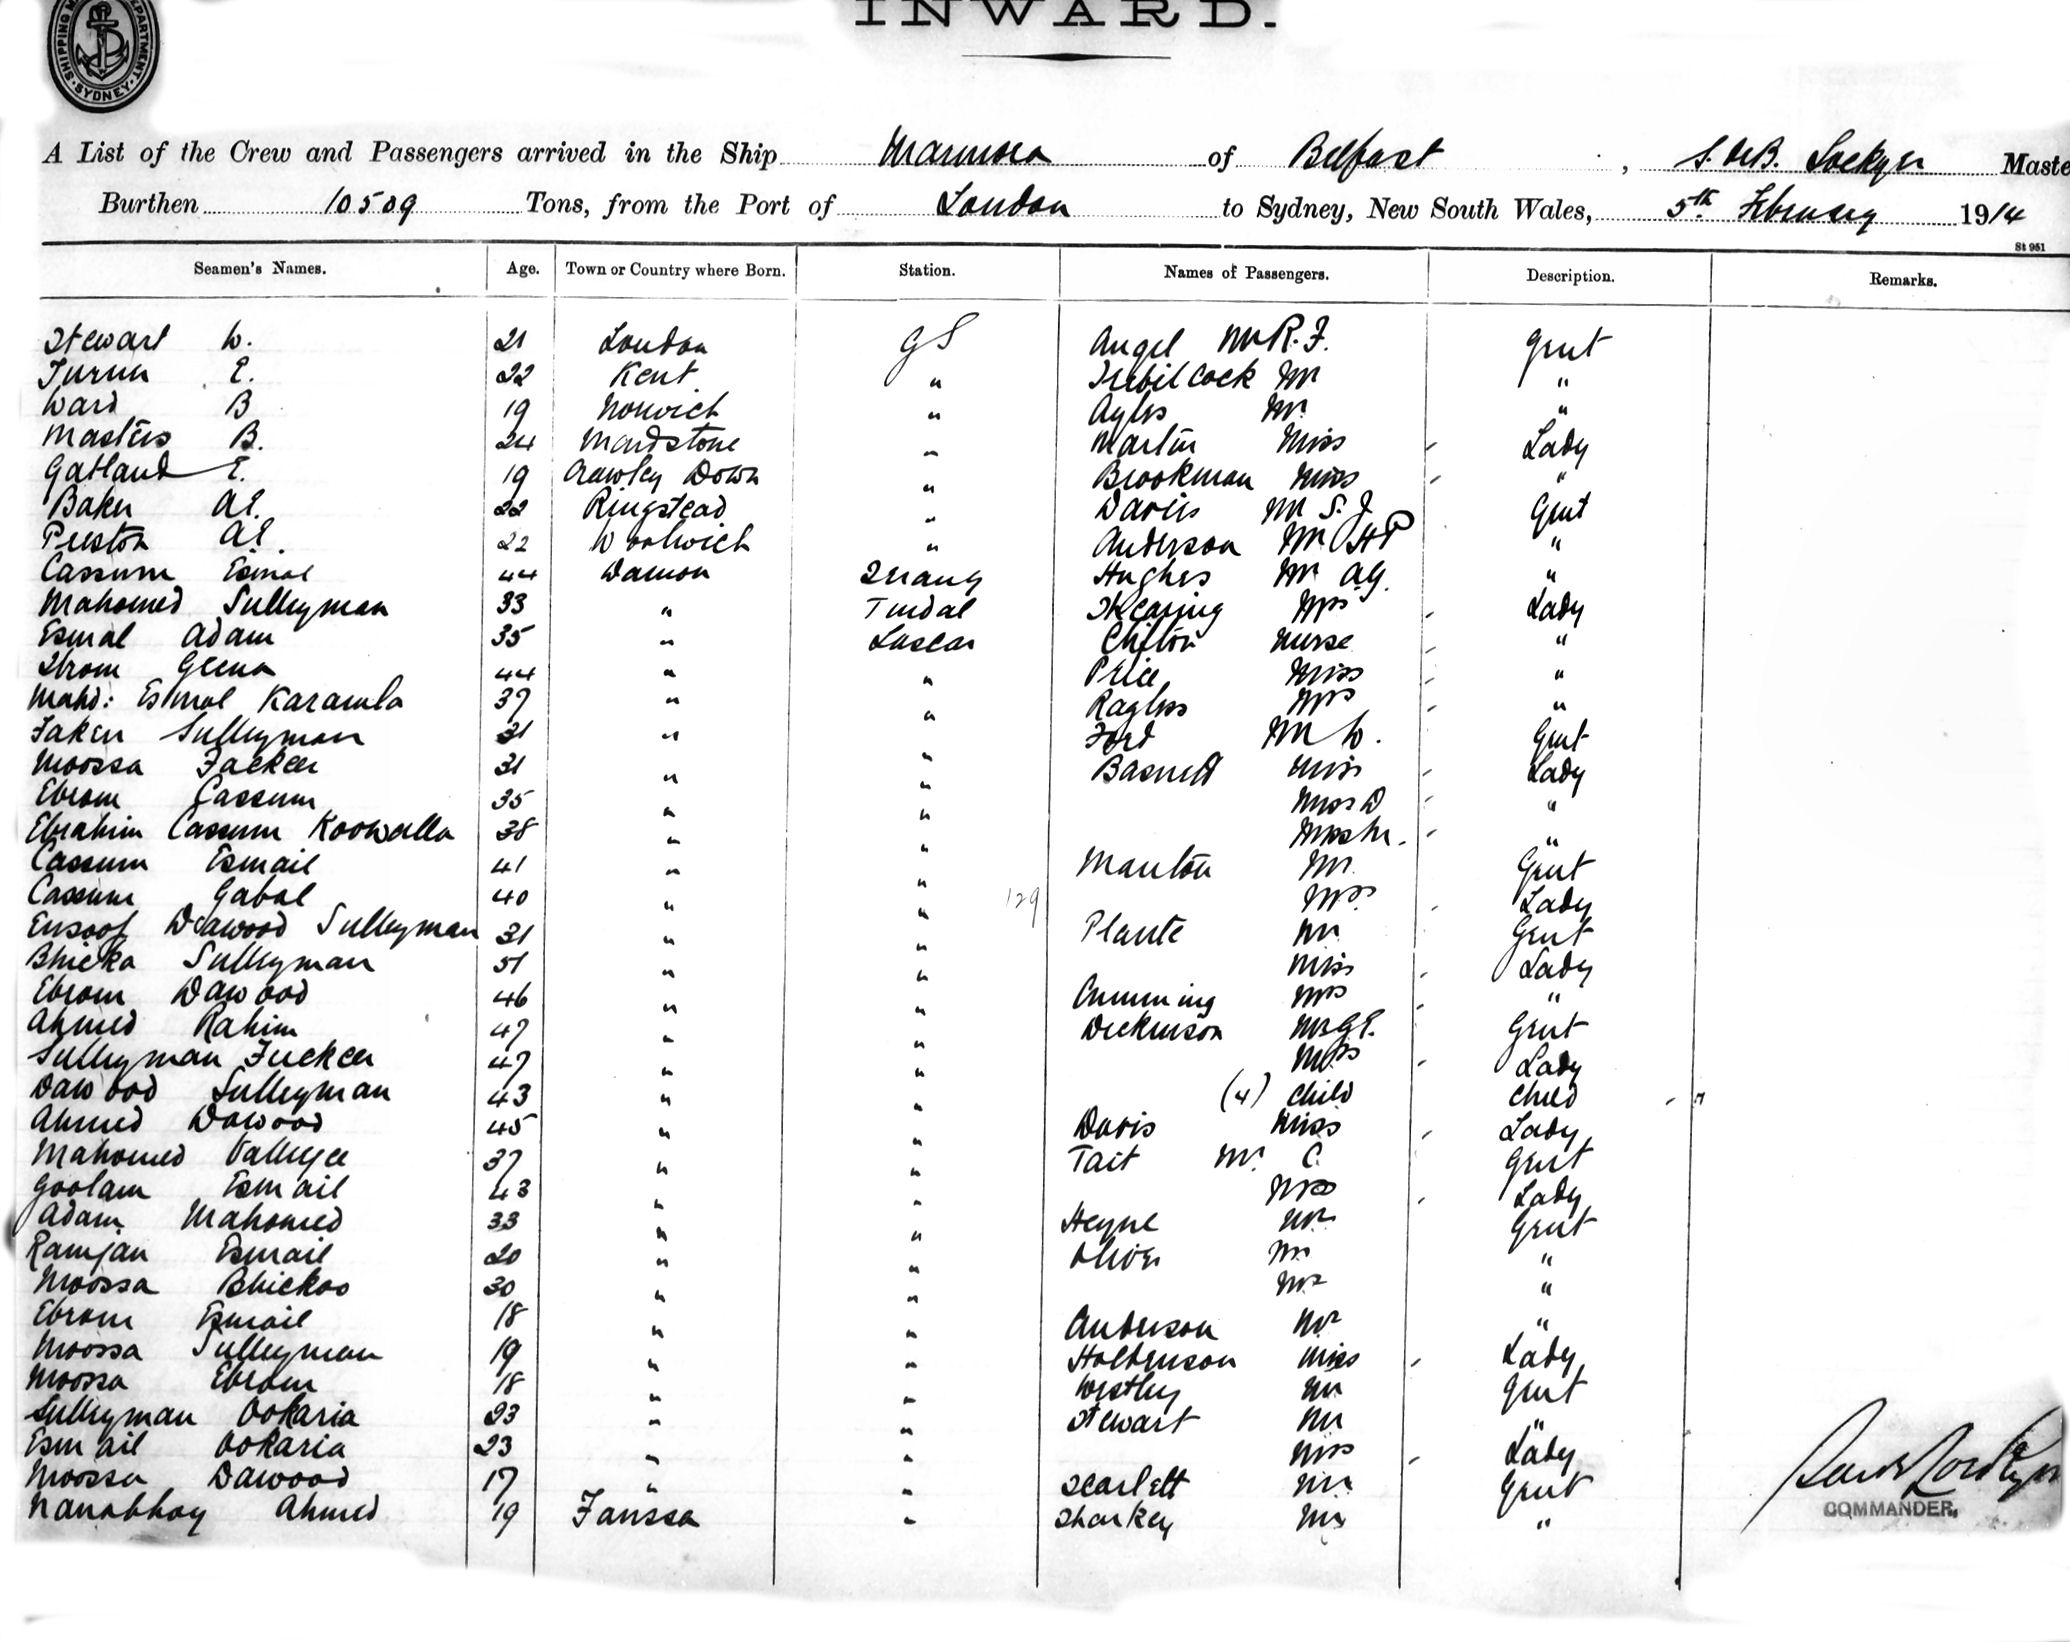 SHIPPING DEPARTMENT SYDNEY
INWARD.
A List of the Crew and Passengers arrived in the Ship Marmora of Belfast, Lockyer Master
Burthen 10509 Tons, from the Port of London to Sydney, New South Wales, 5th February 1914
St 951
Seamen's Names. Age. Town or Country where Born. Station. Names of Passengers. Description. Remarks.
Stewart W. 21 London GS Angel Mr R. F. Gent
Turner E. 22 Kent " Trebilcock Mr "
Ward B 19 Norwich " Ayles Mr "
Masters B. 24 Maidstone " Martin Miss Lady
Gatland E. 19 Crawley Down " Brookman Miss "
Baker A E. 22 Ringstead " Davies Mr S. J. Gent
Preston A E. 22 Woolwich " Anderson Mr H P "
Cassum Esmal 44 Damon Serang Hughes Mr A G. "
Mahomed Sulleyman 33 " Tindal Skearing Mrs Lady
Esmal Adam 35 " Lascar Clifton Nurse "
Ibrom Geena 44 " " Price Miss "
Mahd: Esmal Karamla 37 " " Ragless Mrs "
Faker Sulleyman 31 " " Ford Mr W. Gent
Moossa Fackeer 31 " " Basnett Miss Lady
Ebrom Cassum 35 " " Miss D "
Ebrahim Cassum Koowalla 38 " " Miss M. "
Cassum Esmail 41 " " Manton Mr. Gent
Cassum Gabal 40 " " 129 Mrs. Lady
Eusoof Dawood Sulleyman 31 " " Plante Mr Gent
Bhicka Sulleyman 51 " " Miss Lady
Ebrom Dawood 46 " " Cumming Mrs "
Ahmed Rahim 47 " " Dickinson Mr G E. Gent
Sulleyman Fuckeer 47 " " Mrs Lady
Dawood Sulleyman 43 " " (4) Child Child
Ahmed Dawood 45 " " Davis Miss Lady
Mahomed Valleyee 37 " " Tait Mr. C. Gent
Goolam Esmail 43 " " Mrs Lady
Adam Mahomed 33 " " Heyne Mr Gent
Ramjan Esmail 20 " " Oliver Mr "
Moossa Bhickoo 30 " " Mr "
Ebrom Esmail 18 " " Anderson Mr "
Moossa Sulleyman 19 " " Holdenson Miss Lady
Moossa Ebrom 18 " " Westley Mr Gent
Sulleyman Ookaria 23 " " Stewart Mr "
Esmail Ookaria 23 " " Mrs Lady
Moossa Dawood 17 " " Scarlett Mr Gent
Nanabhoy Ahmed 19 Faussa " Sharkey Mr "
COMMANDER.